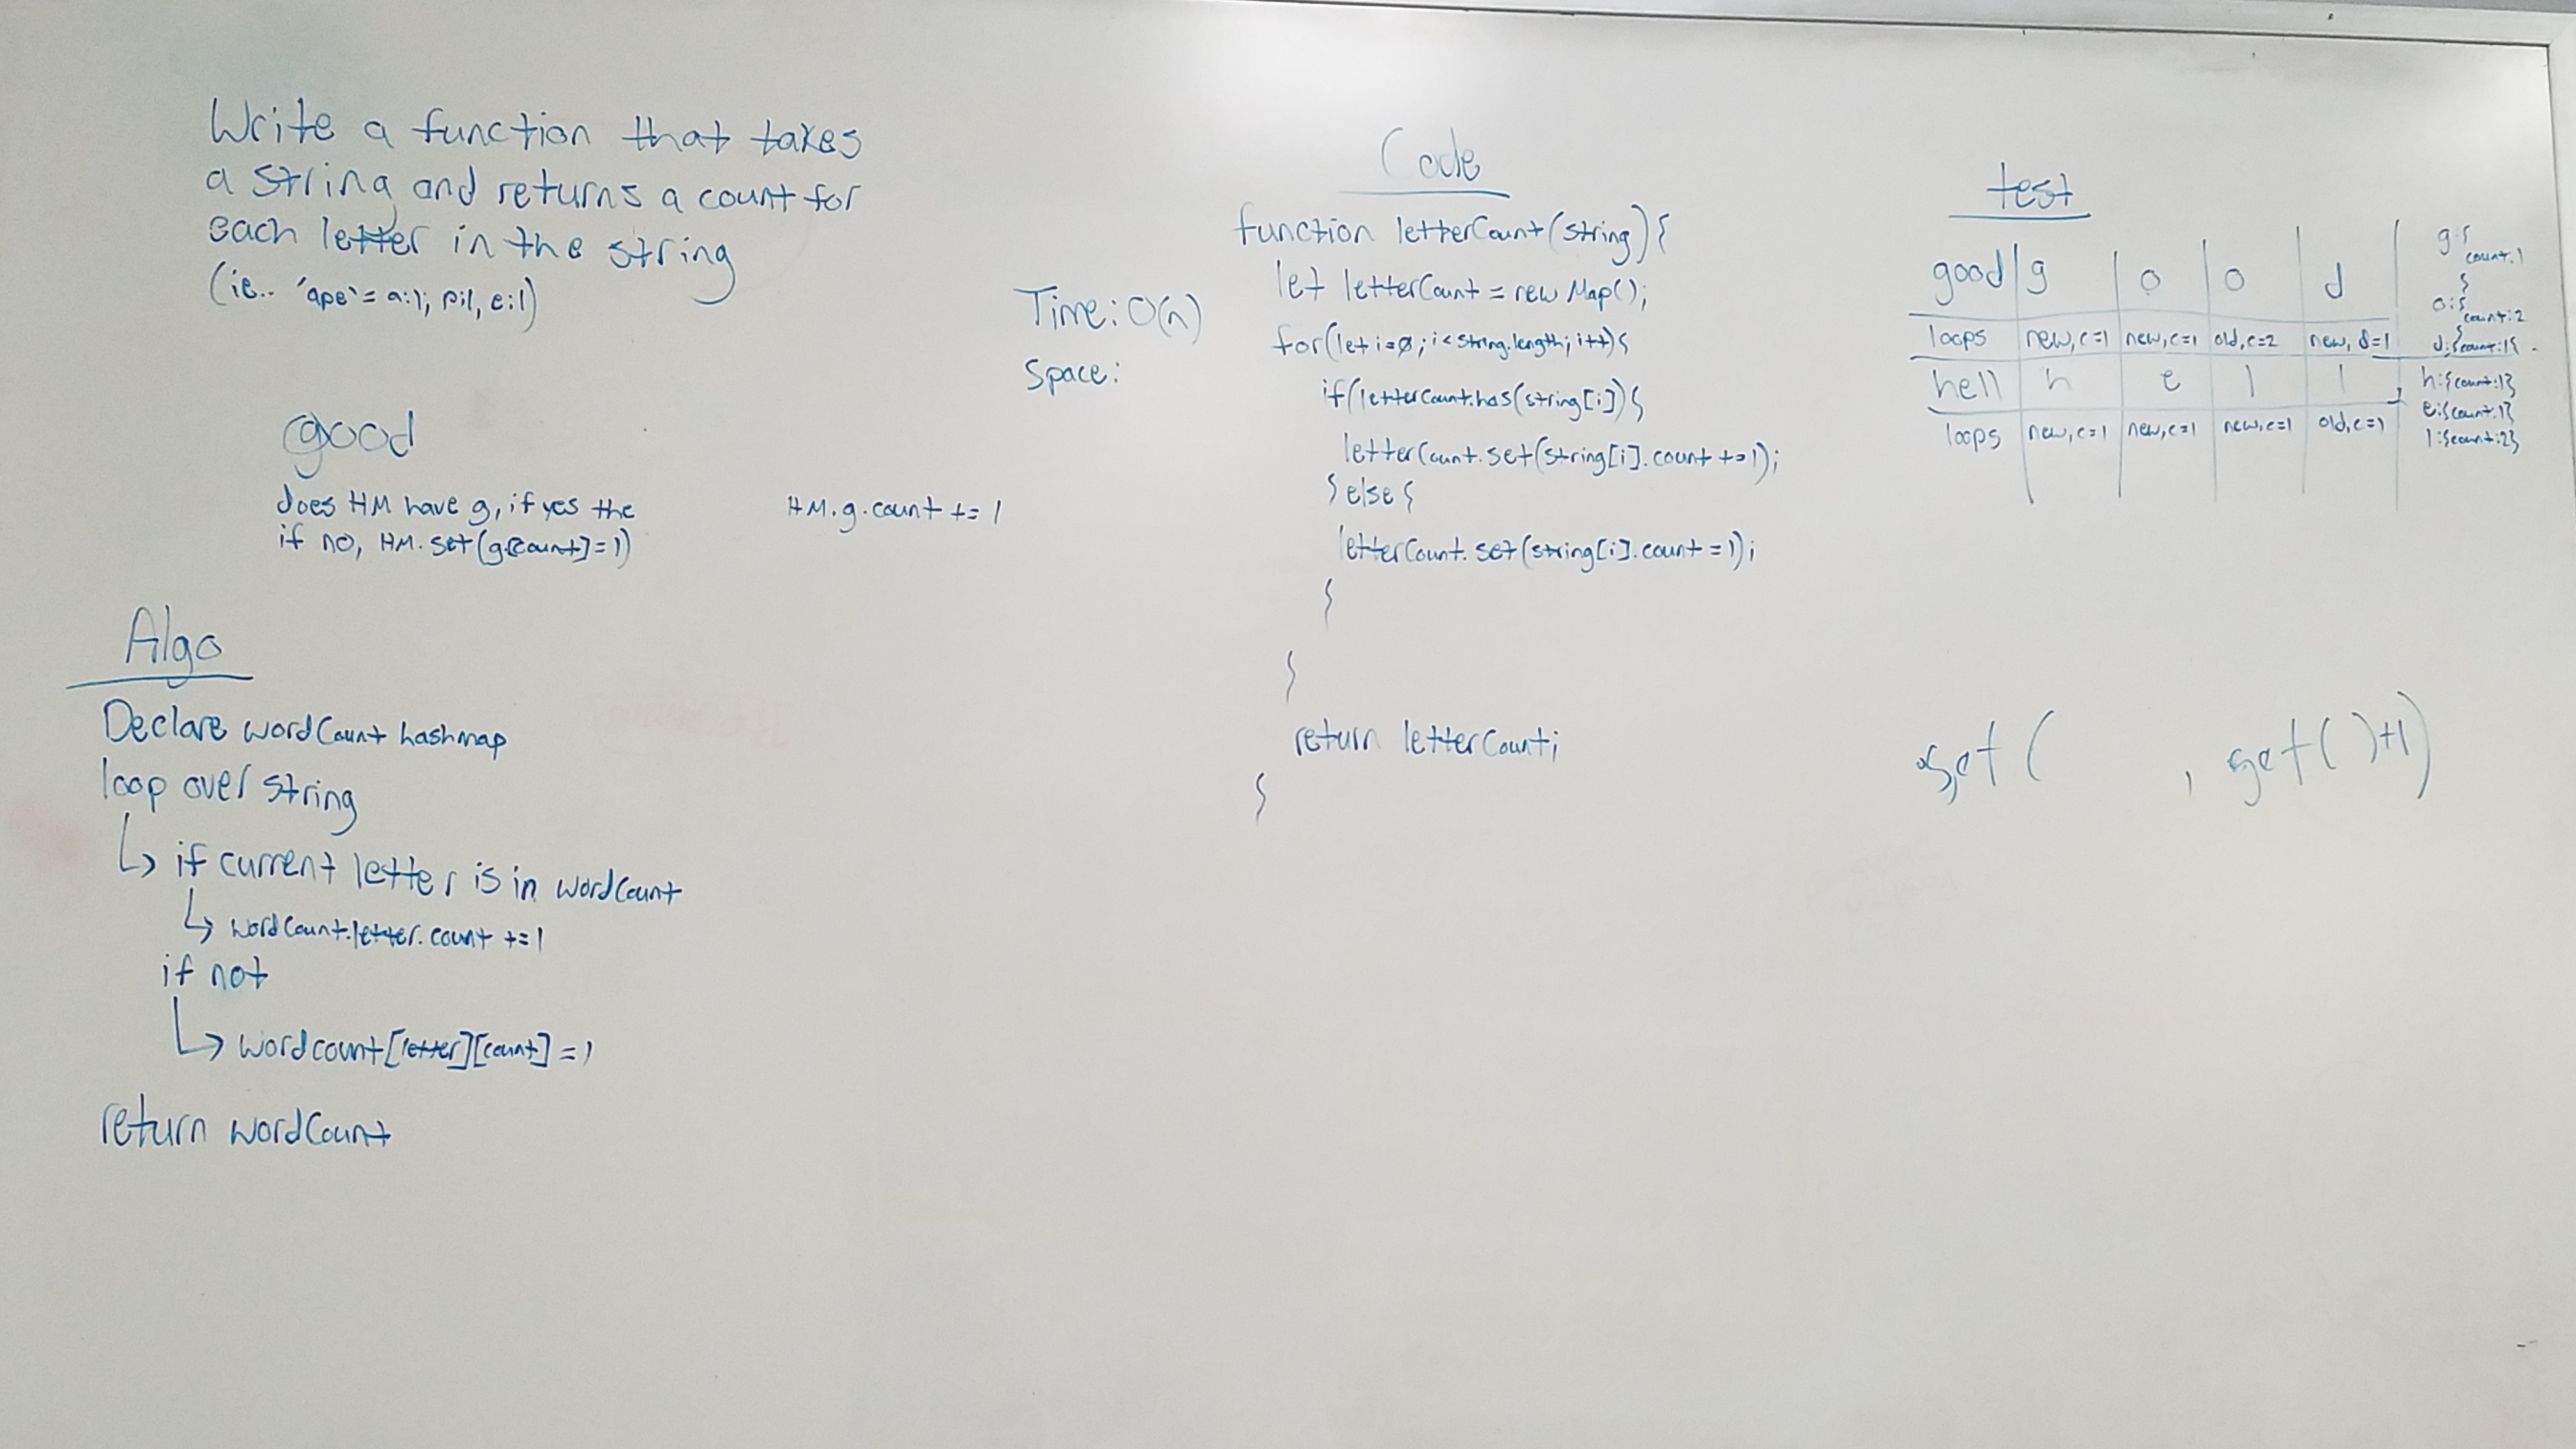 Write a function that takes
a string and returns a count for
each letter in the string
(ie.. 'ape' = a:1, p:1, e:1)
good
does HM have g, if yes the HM.g.count += 1
if no, HM.set(g.[count]=1)
Algo
Declare wordCount hashmap
loop over string
↳ if current letter is in wordCount
↳ wordCount.letter.count += 1
if not
↳ wordcount[letter][count] = 1
return wordCount
Time: O(n)
Space:
Code
function letterCount(string){
let letterCount = new Map();
for(let i=0; i < string.length; i++){
if(letterCount.has(string[i]){
letterCount.set(string[i].count +=1);
} else {
letterCount.set(string[i].count = 1);
}
}
return letterCount;
}
test
good | g | o | o | d | g:{ count:1 } o:{ count:2 }
loops | new, c=1 | new, c=1 | old, c=2 | new, d=1 | d:{count:1}
hell | h | e | l | l | h:{count:1}
e:{count:1}
loops | new, c=1 | new, c=1 | new, c=1 | old, c=1 | l:{count:2}
set( , get( )+1)